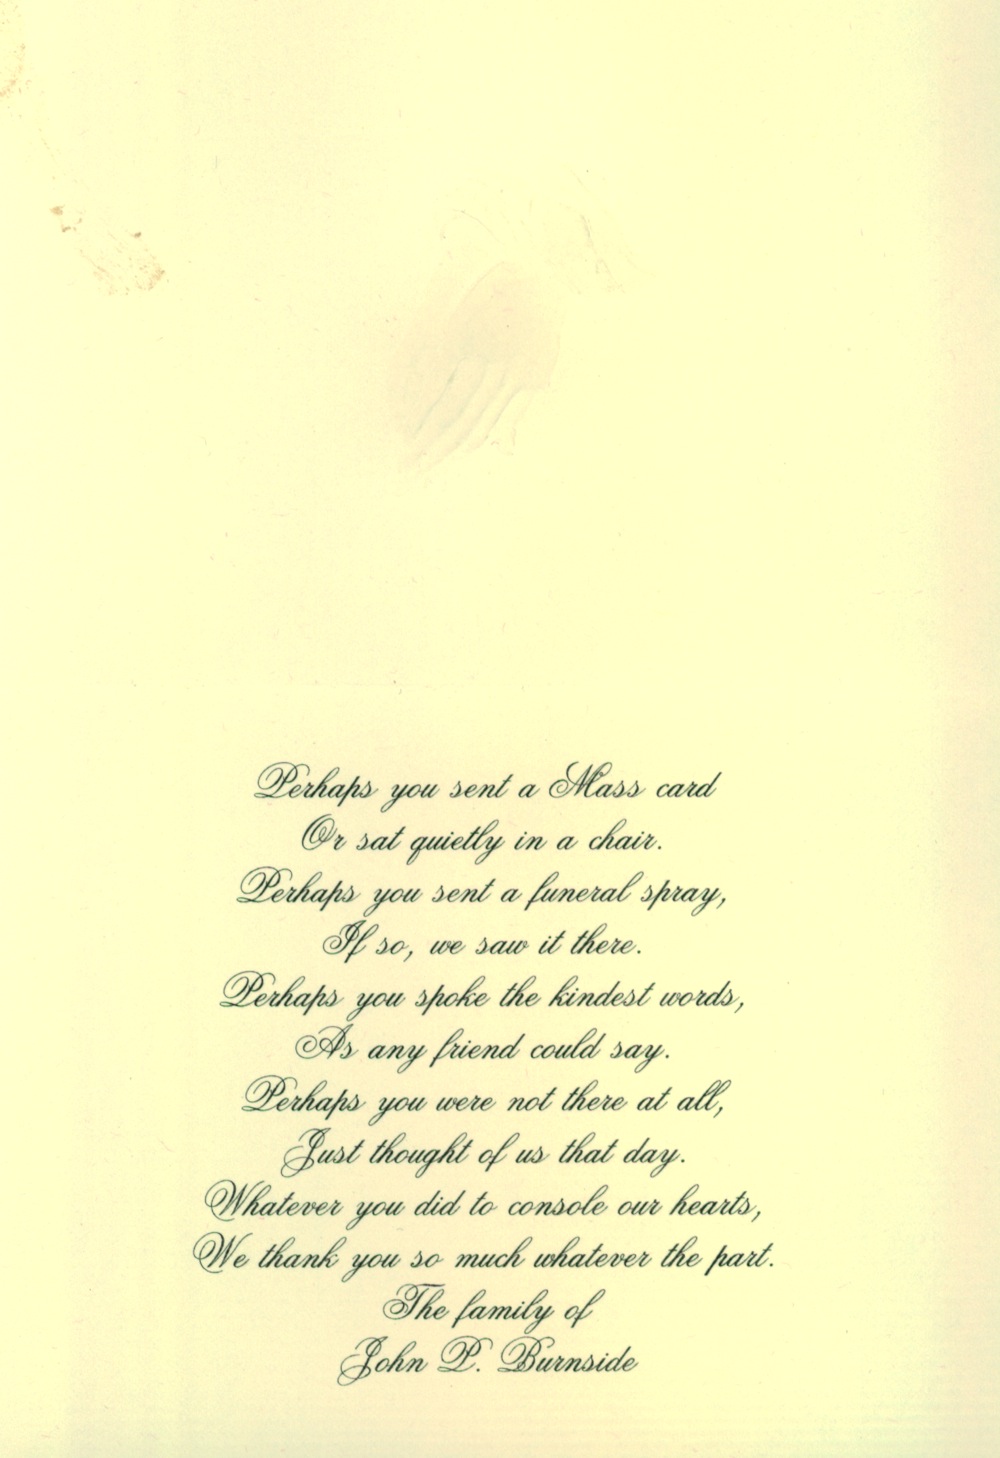 Perhaps you sent a Mass card
Or sat quietly in a chair.
Perhaps you sent a funeral spray,
If so, we saw it there.
Perhaps you spoke the kindest words,
As any friend could say.
Perhaps you were not there at all,
Just thought of us that day.
Whatever you did to console our hearts,
We thank you so much whatever the part.
The family of
John P. Burnside